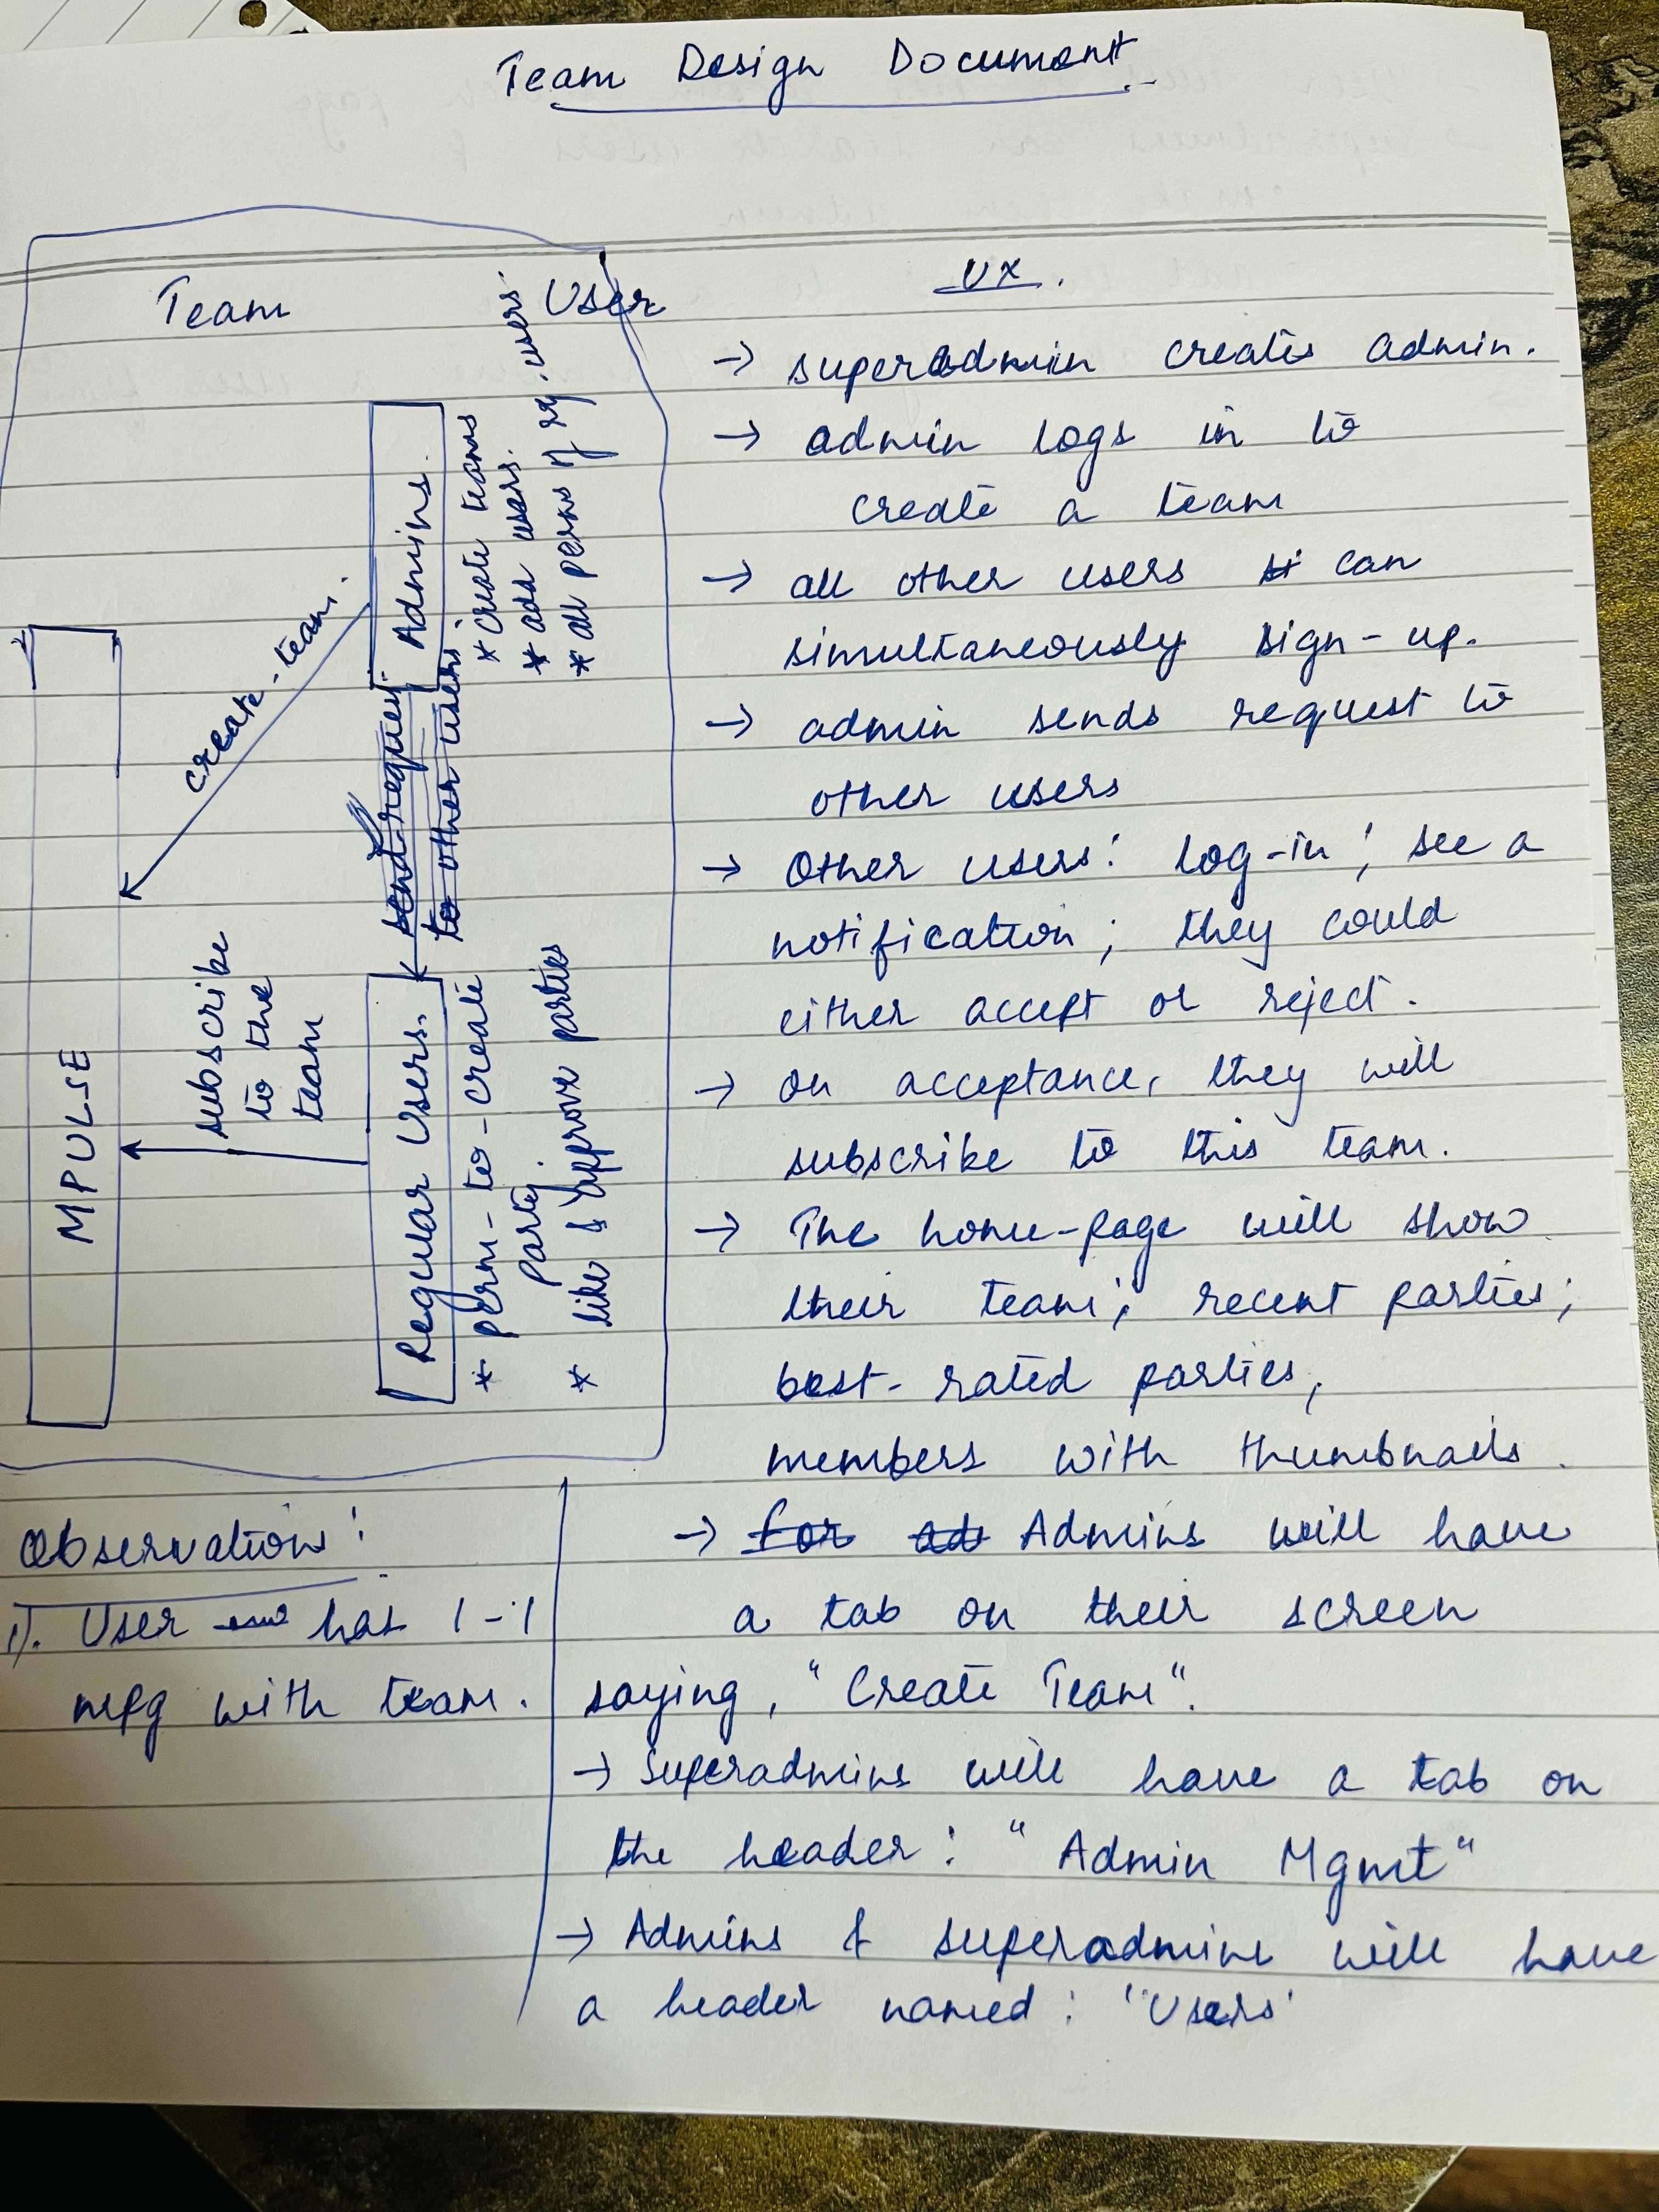 Team Design Document
Team
User
MPULSE
create-team.
subscribe
to the
team
Admins.
* create teams
* add users.
* all perms of reg. users.
send request
to other users
Regular Users.
* perm-to-create
party.
* like & approve parties
Observation:
1). User has 1-1
mpg with team.
UX.
→ superadmin creates admin.
→ admin logs in to
create a team
→ all other users can
simultaneously sign-up.
→ admin sends request to
other users
→ Other users: log-in; see a
notification; they could
either accept or reject.
→ on acceptance, they will
subscribe to this team.
→ The home-page will show
their team; recent parties;
best-rated parties,
members with thumbnails.
→ for ad Admins will have
a tab on their screen
saying, "Create Team".
→ Superadmins will have a tab on
the header: "Admin Mgmt"
→ Admins & superadmins will have
a header named: "Users'